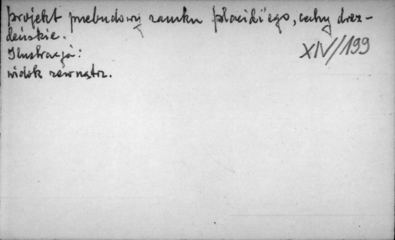 projekt przebudowy zamku płocidi'ego, cechy drez-
deńskie.
Ilustracja:
widok zewnątrz.
XIV/199